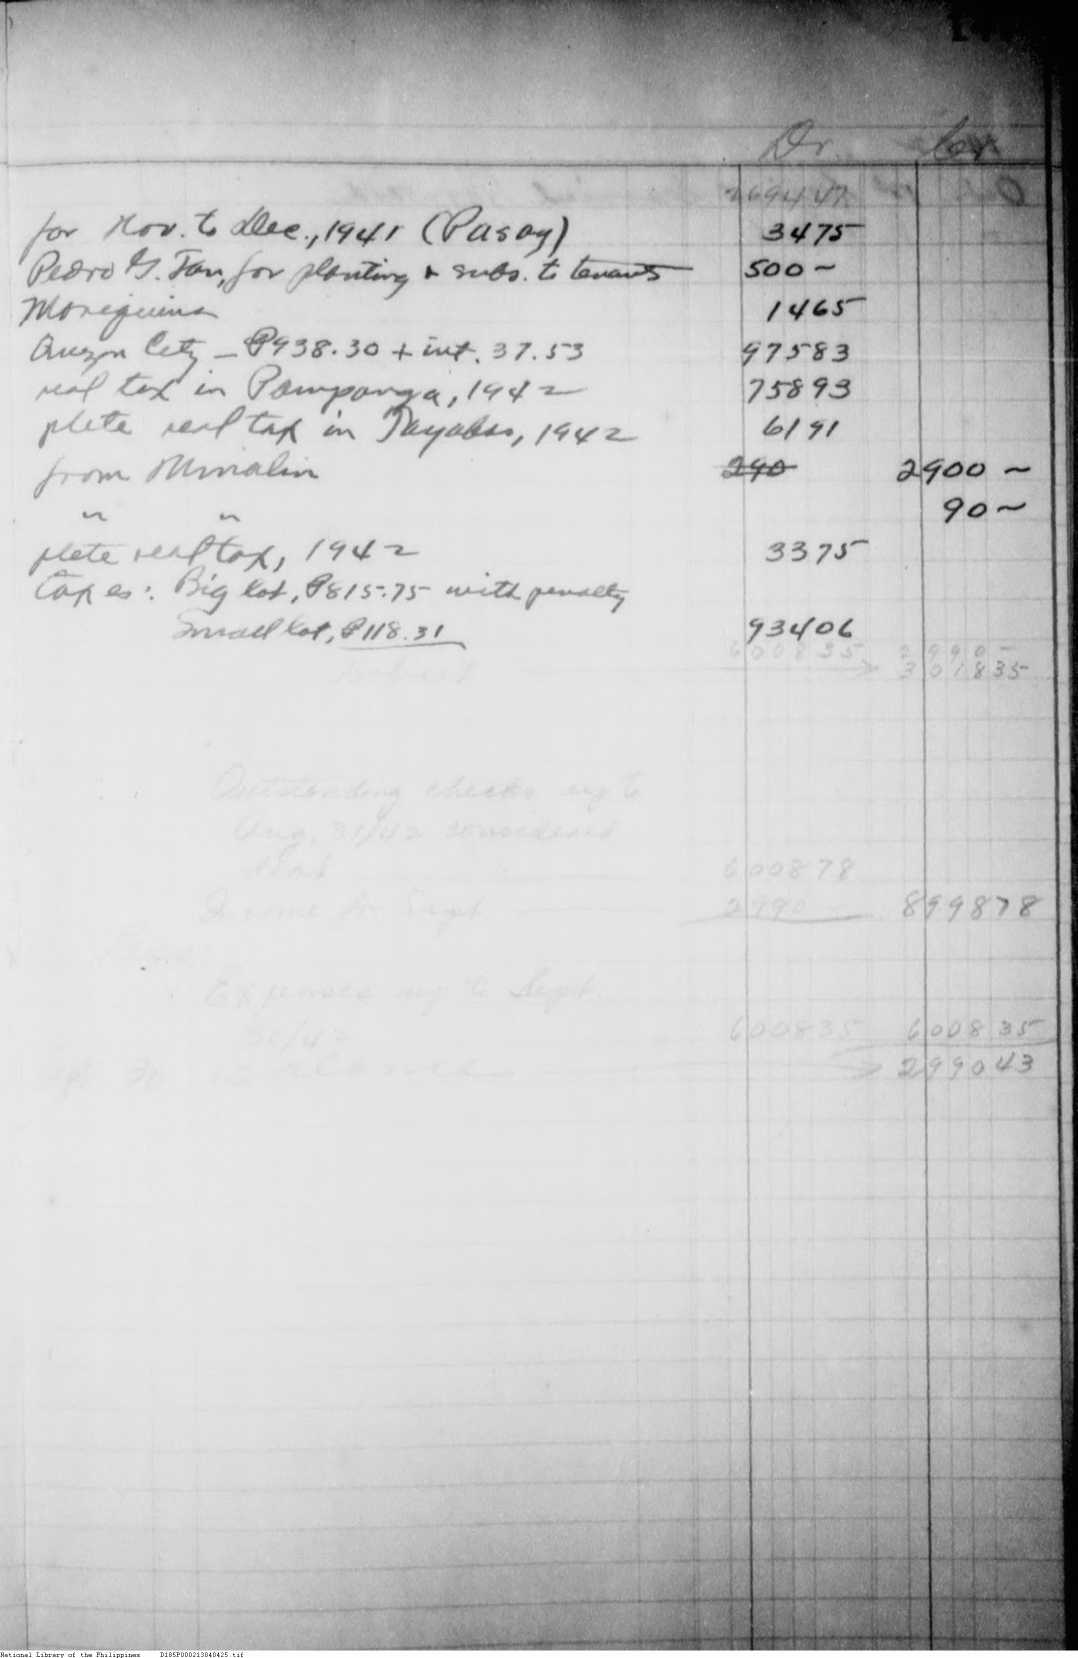 Dr. Cr.
269447
for Nov. to Dec., 1941 (Pasay) 3475
Pedro G. Tan, for planting & subs. to tenants 500 ~
1465
Quezon City — ₱938.30 + int. 37.53 97583
real tax in Pampanga, 1942 75893
plete real tax in Tayabas, 1942 6191
from Minalin 290 2900 ~
" " 90 ~
plete real tax, 1942 3375
taxes: Big lot, ₱815.75 with penalty
Small lot, ₱118.31 93406
600835 2990 -
301835
Outstanding checks up to
Aug. 31/42 considered
600878
Income for Sept. 2990 899878
Expenses up to Sept.
30/42 600835 600835
299043
National Library of the Philippines D185P000213040425.tif